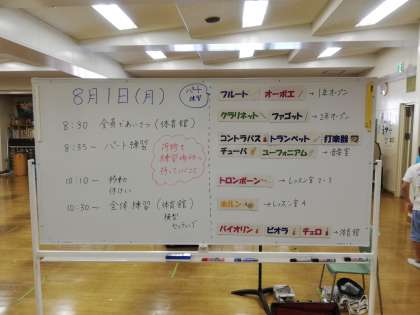 8月1日(月)
パート練習
8:30 全員であいさつ(体育館)
8:35〜 パート練習
10:10〜 移動
休けい
10:30〜 全体練習(体育館)
フルート オーボエ →1年オープン
クラリネット ファゴット →2年オープン
コントラバス トランペット 打楽器
チューバ ユーフォニアム →音楽室
トロンボーン →レッスン室2-3
ホルン →レッスン室4
バイオリン ビオラ チェロ →体育館